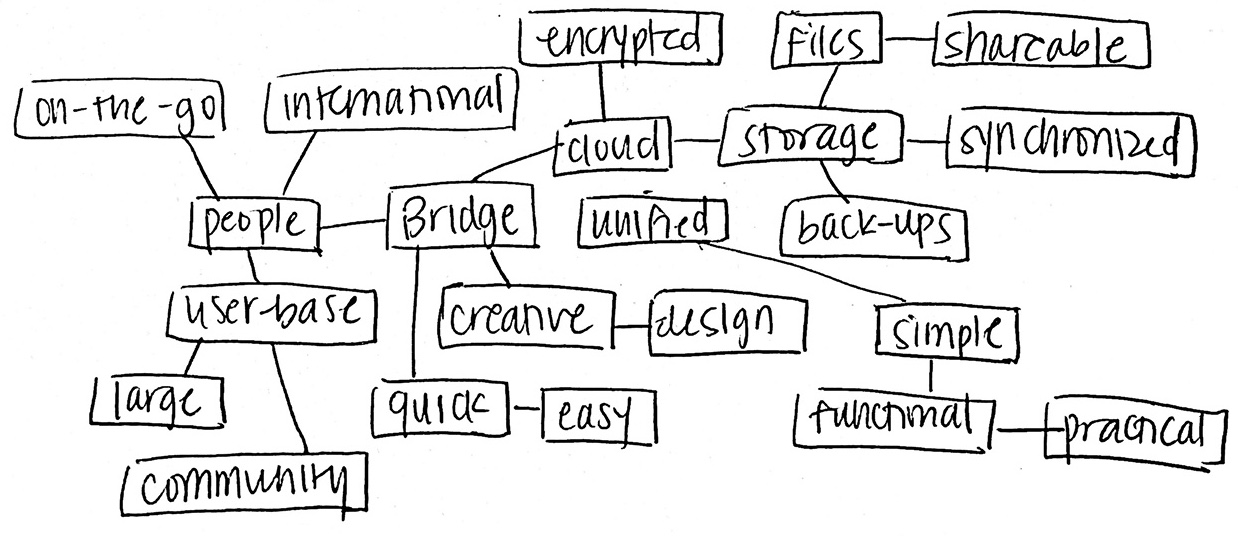 encrypted
files
shareable
on-the-go
international
cloud
storage
synchronized
people
Bridge
unified
back-ups
user-base
creative
design
simple
large
quick
easy
functional
practical
community